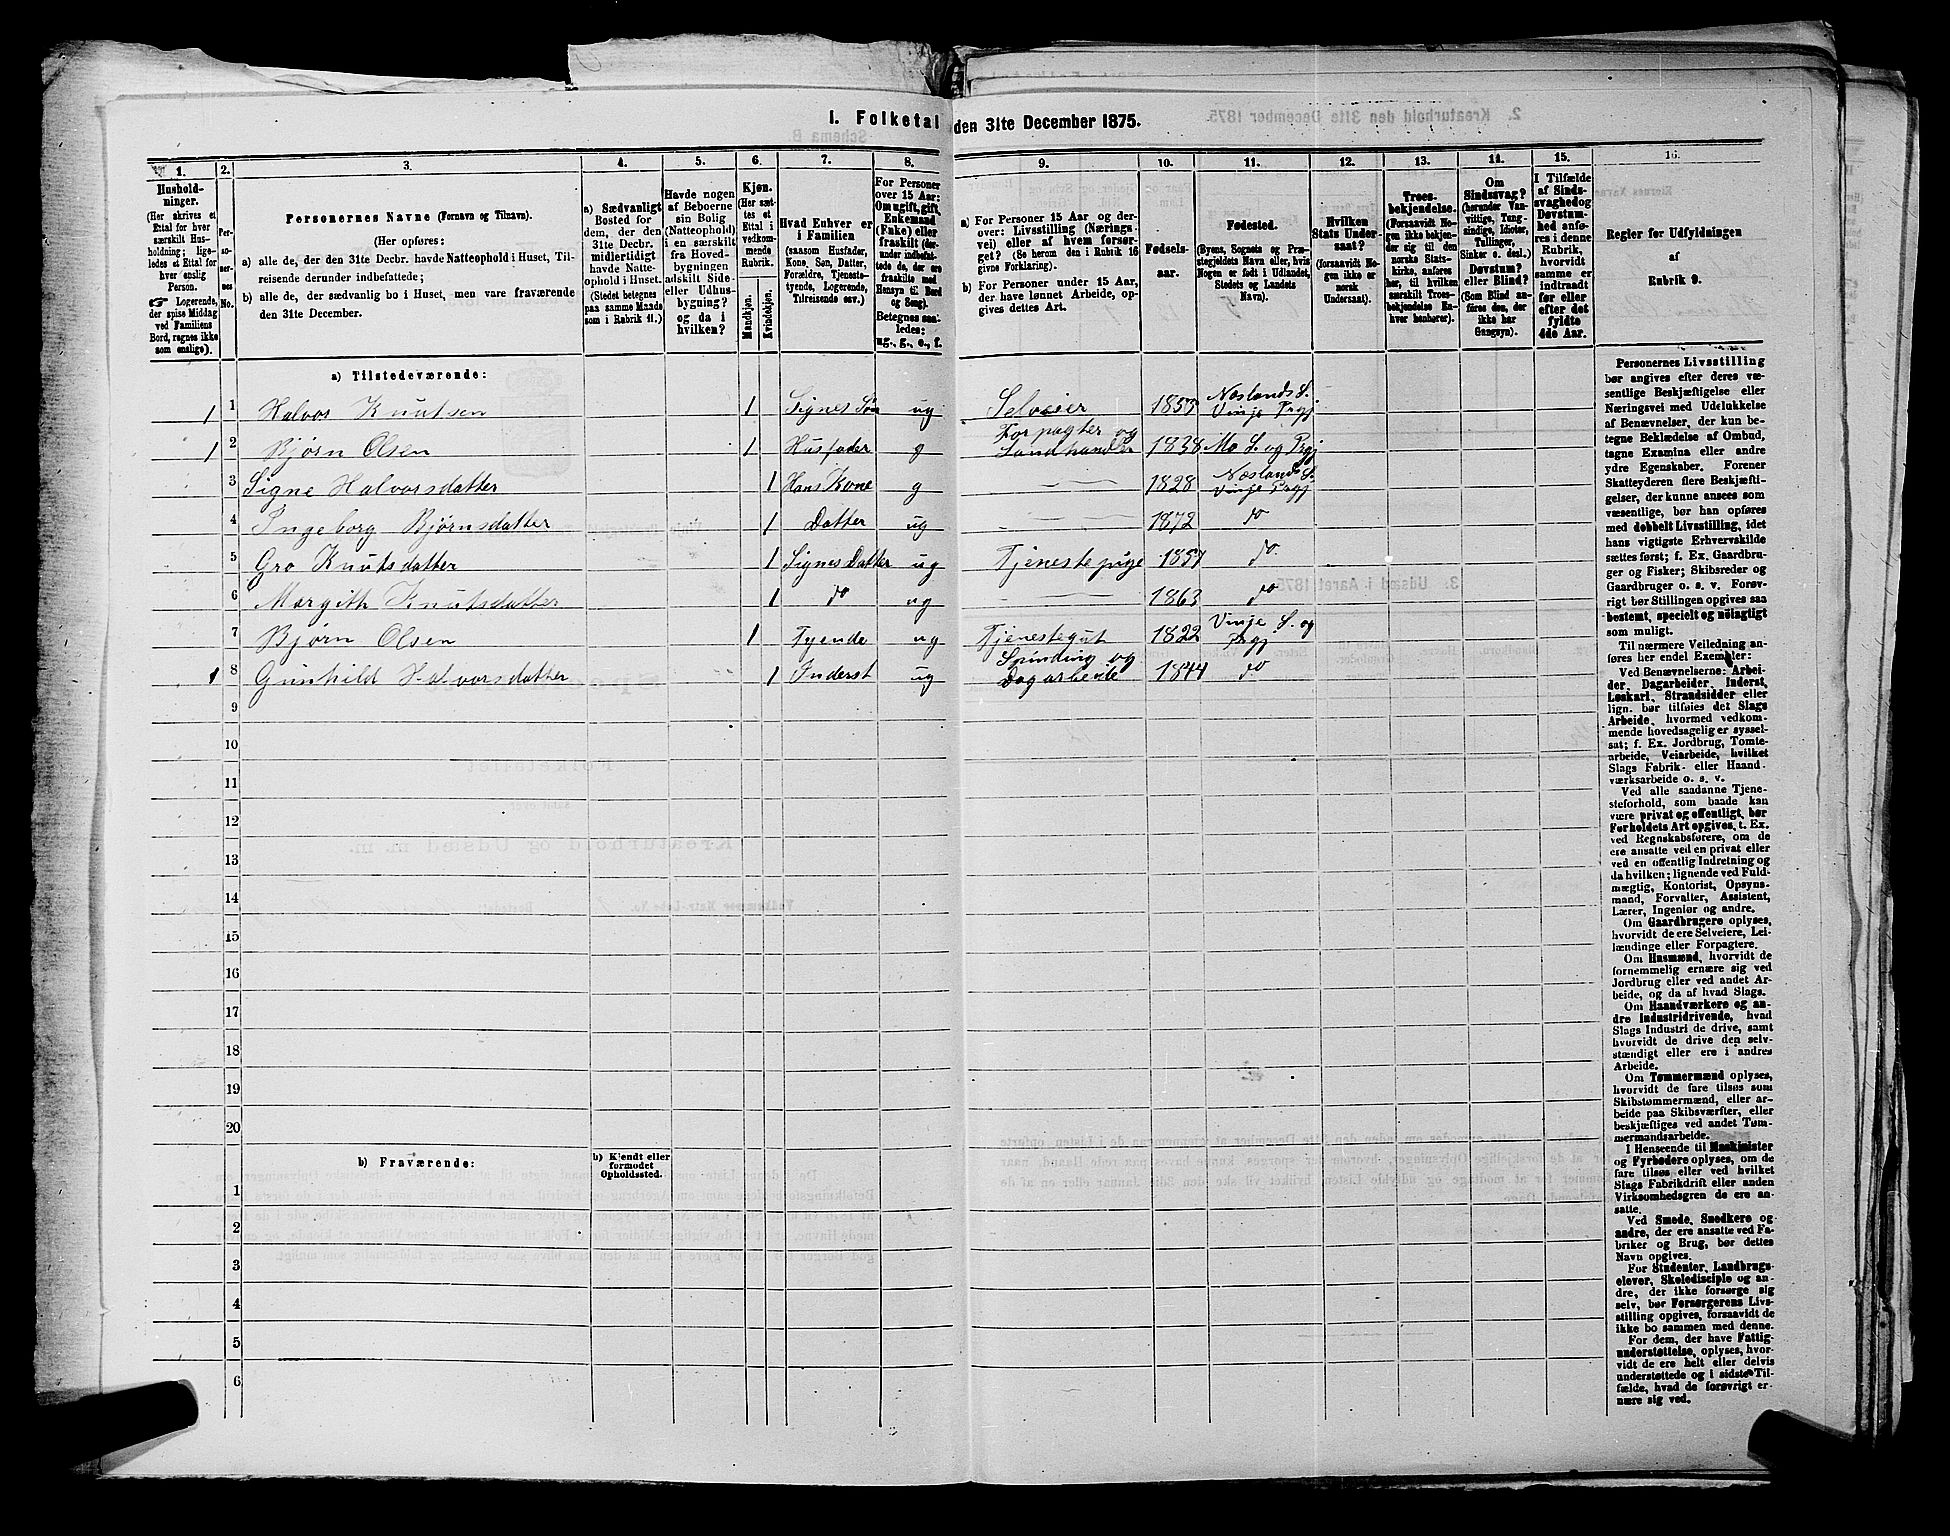 1. Folketal den 31te December 1875.
1. 2. 3. 4. 5. 6. 7. 8. 9. 10. 11. 12. 13. 14. 15. 16.
Hushold-
ninger.
(Her skrives et
Ettal for hver
særskilt Hus-
holdning; lige-
ledes et Ettal for
hver enslig
Person.
☞ Logerende,
der spise Middag
ved Familiens
Bord, regnes ikke
som enslige).
Per-
so-
ner-
nes
No.
Personernes Navne (Fornavn og Tilnavn).
(Her opføres:
a) alle de, der den 31te Decbr. havde Natteophold i Huset, Til-
reisende derunder indbefattede;
b) alle de, der sædvanlig bo i Huset, men vare fraværende
den 31te December.
a) Sædvanligt
Bosted for
dem, der den
31te Decbr.
midlertidigt
havde Natte-
ophold i Huset.
(Stedet betegnes
paa samme Maade
som i Rubrik 11.)
Havde nogen
af Beboerne
sin Bolig
(Natteophold)
i en særskilt
fra Hoved-
bygningen
adskilt Side-
eller Udhus-
bygning?
og da i
hvilken?
Kjøn.
(Her sæt-
tes et
Ettal i
vedkom-
mende
Rubrik.
Mandkjøn.
Kvindekjøn.
Hvad Enhver er
i Familien
(saasom Husfader,
Kone, Søn, Datter,
Forældre, Tjeneste-
tyende, Logerende,
Tilreisende osv.)
For Personer
over 15 Aar:
Om ugift, gift,
Enkemand
(Enke) eller
fraskilt (der-
under indbefat-
tede de, der ere
fraskilte med
Hensyn til Bord
og Seng).
Betegnes saa-
ledes:
ug., g., e., f.
a) For Personer 15 Aar og der-
over: Livsstilling (Nærings-
vei) eller af hvem forsør-
get? (Se herom den i Rubrik 16
givne Forklaring).
b) For Personer under 15 Aar,
der have lønnet Arbeide, op-
gives dettes Art.
Fødsels-
aar.
Fødested.
(Byens, Sognets og Præ-
stegjeldets Navn eller, hvis
Nogen er født i Udlandet,
Stedets og Landets
Navn).
Hvilken
Stats Under-
saat?
(forsaavidt No-
gen ikke er
norsk
Undersaat).
Troes-
bekjendelse.
(Forsaavidt No-
gen ikke bekjen-
der sig til den
norske Stats-
kirke, anføres
her, til hvilken
særskilt Troes-
bekjendelse En-
hver henhører).
Om
Sindssvag?
(herunder Van-
vittige, Tung-
sindige, Idioter,
Tullinger,
Sinker o. desl.)
Døvstum?
eller Blind?
(Som Blind an-
føres den, der
ikke har
Gangsyn).
I Tilfælde
af Sinds-
svaghed og
Døvstum-
hed anfø-
res i denne
Rubrik,
hvorvidt
samme er
indtraadt
før eller
efter det
fyldte
4de Aar.
Regler for Udfyldningen
af
Rubrik 9.
a) Tilstedeværende:
1 1 Halvor Knutsen 1 Signes Søn ug Selveier 1853 Næslands S. Vinje Prgj
1 2 Bjørn Olsen 1 Husfader g Forpagter og Landhandler 1838 Mo S. og Prgj
3 Signe Halvorsdatter 1 Hans Kone g — 1828 Næslands S. Vinje Prgj.
4 Ingeborg Bjørnsdatter 1 Datter ug — 1872 do
5 Gro Knutsdatter 1 Signes Datter ug Tjenestepige 1857 do.
6 Margith Knutsdatter 1 do ug — 1863 do
7 Bjørn Olsen 1 Tyende ug Tjenestegut 1822 Vinje S. og Prgj.
1 8 Gunhild Halvorsdatter 1 Inderst ug Spinding og Dagarbeide 1844 do
9
10
11
12
13
14
15
16
17
18
19
20
b) Fraværende:
b) Kjendt eller
formodet
Opholdssted.
1
2
3
4
5
6
Personernes Livsstilling
bør angives efter deres væ-
sentlige Beskjæftigelse eller
Næringsvei med Udelukkelse
af Benævnelser, der kun be-
tegne Beklædelse af Ombud,
tagne Examina eller andre
ydre Egenskaber. Forener
Skatteyderen flere Beskjæfti-
gelser, der kunne ansees som
væsentlige, bør han opføres
med dobbelt Livsstilling, idet
hans vigtigste Erhvervskilde
sættes først; f. Ex. Gaardbru-
ger og Fisker; Skibsreder og
Gaardbruger o. s. v. Forøv-
rigt bør Stillingen opgives saa
bestemt, specielt og nøiagtigt
som muligt.
Til nærmere Veiledning an-
føres her endel Exempler:
Ved Benævnelserne: Arbei-
der, Dagarbeider, Inderst,
Løskarl, Strandsidder eller
lign. bør tilføies det Slags
Arbeide, hvormed vedkom-
mende hovedsagelig er syssel-
sat; f. Ex. Jordbrug, Tomte-
arbeide, Veiarbeide, hvilket
Slags Fabrik- eller Haand-
værksarbeide o. s. v.
Ved alle saadanne Tjene-
steforhold, som baade kan
være privat og offentligt, bør
Forholdets Art opgives, t. Ex.
ved Regnskabsførere, om de
ere ansatte ved en privat eller
ved en offentlig Indretning og
da hvilken; lignende ved Fuld-
mægtig, Kontorist, Opsyns-
mand, Forvalter, Assistent,
Lærer, Ingeniør og andre.
Om Gaardbrugere oplyses,
hvorvidt de ere Selveiere, Lei-
lændinge eller Forpagtere.
Om Husmænd, hvorvidt de
fornemmelig ernære sig ved
Jordbrug eller ved andet Ar-
beide, og da af hvad Slags.
Om Haandværkere og an-
dre Industridrivende, hvad
Slags Industri de drive, samt
hvorvidt de drive den selv-
stændigt eller ere i andres
Arbeide.
Om Tømmermænd oplyses,
hvorvidt de fare tilsøs som
Skibstømmermænd, eller ar-
beide paa Skibsværfter, eller
beskjæftiges ved andet Tøm-
mermandsarbeide.
I Henseende til Maskinister
og Fyrbødere oplyses, om de
fare tilsøs eller ved hvilket
Slags Fabrikdrift eller anden
Virksomhedsgren de ere an-
satte.
Ved Smede, Snedkere og
andre, der ere ansatte ved Fa-
briker og Brug, bør dettes
Navn opgives.
For Studenter, Landbrugs-
elever, Skoledisciple og an-
dre, der ikke forsørge sig
selv, bør Forsørgerens Livs-
stilling opgives, forsaavidt de
ikke bo sammen med denne.
For dem, der have Fattig-
understøttelse, oplyses, hvor-
vidt de ere helt eller delvis
understøttede og i sidste Til-
fælde, hvad de forøvrigt er-
nære sig ved.